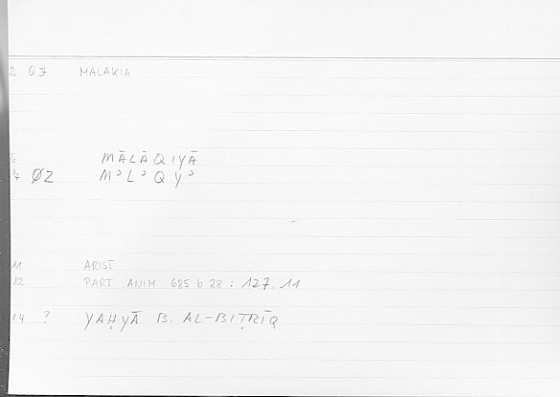 2 0.7 MALAKIA
6 MĀLĀQIYĀ
7 ØZ MʾLʾQYʾ
11 ARIST
12 PART ANIM 685 b 28 : 127.11
14 ? YAḤYĀ B. AL-BIṬRĪQ